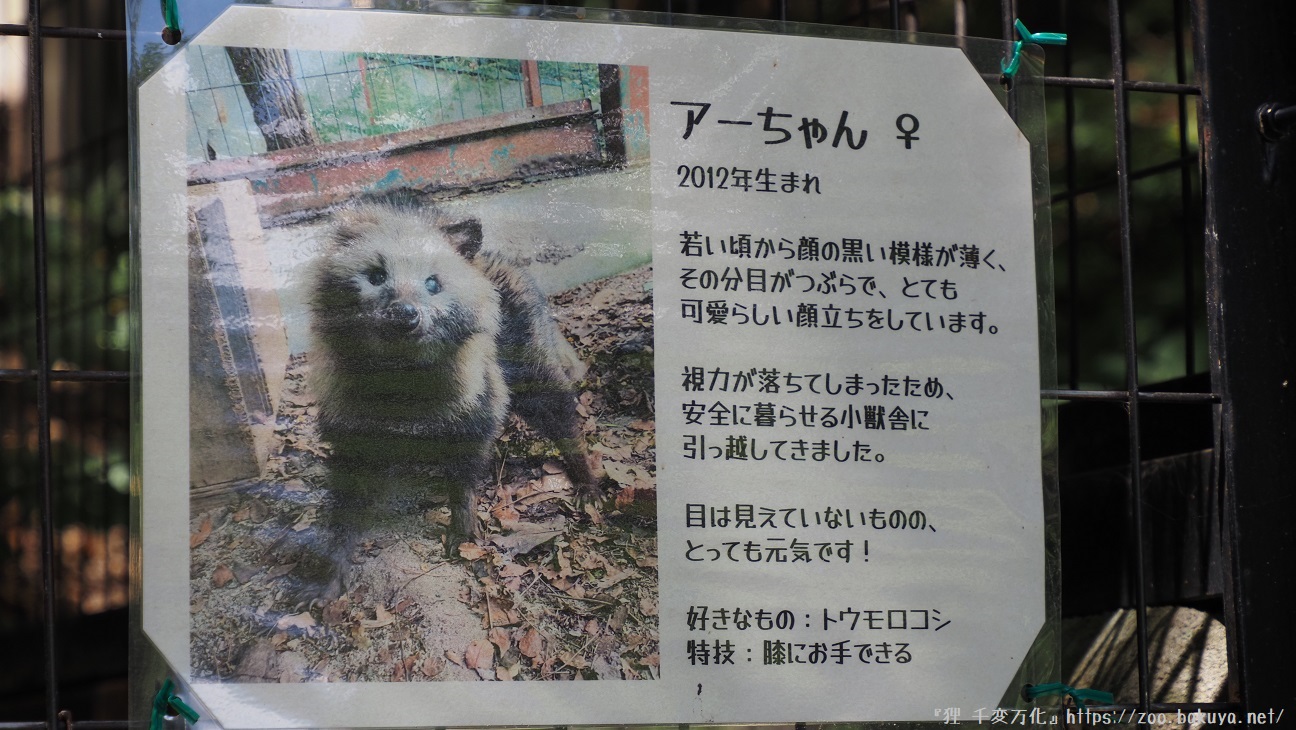 アーちゃん ♀
2012年生まれ
若い頃から顔の黒い模様が薄く、
その分目がつぶらで、とても
可愛らしい顔立ちをしています。
視力が落ちてしまったため、
安全に暮らせる小獣舎に
引っ越してきました。
目は見えていないものの、
とっても元気です！
好きなもの：トウモロコシ
特技：膝にお手できる
『狸 千変万化』https://zoo.bakuya.net/